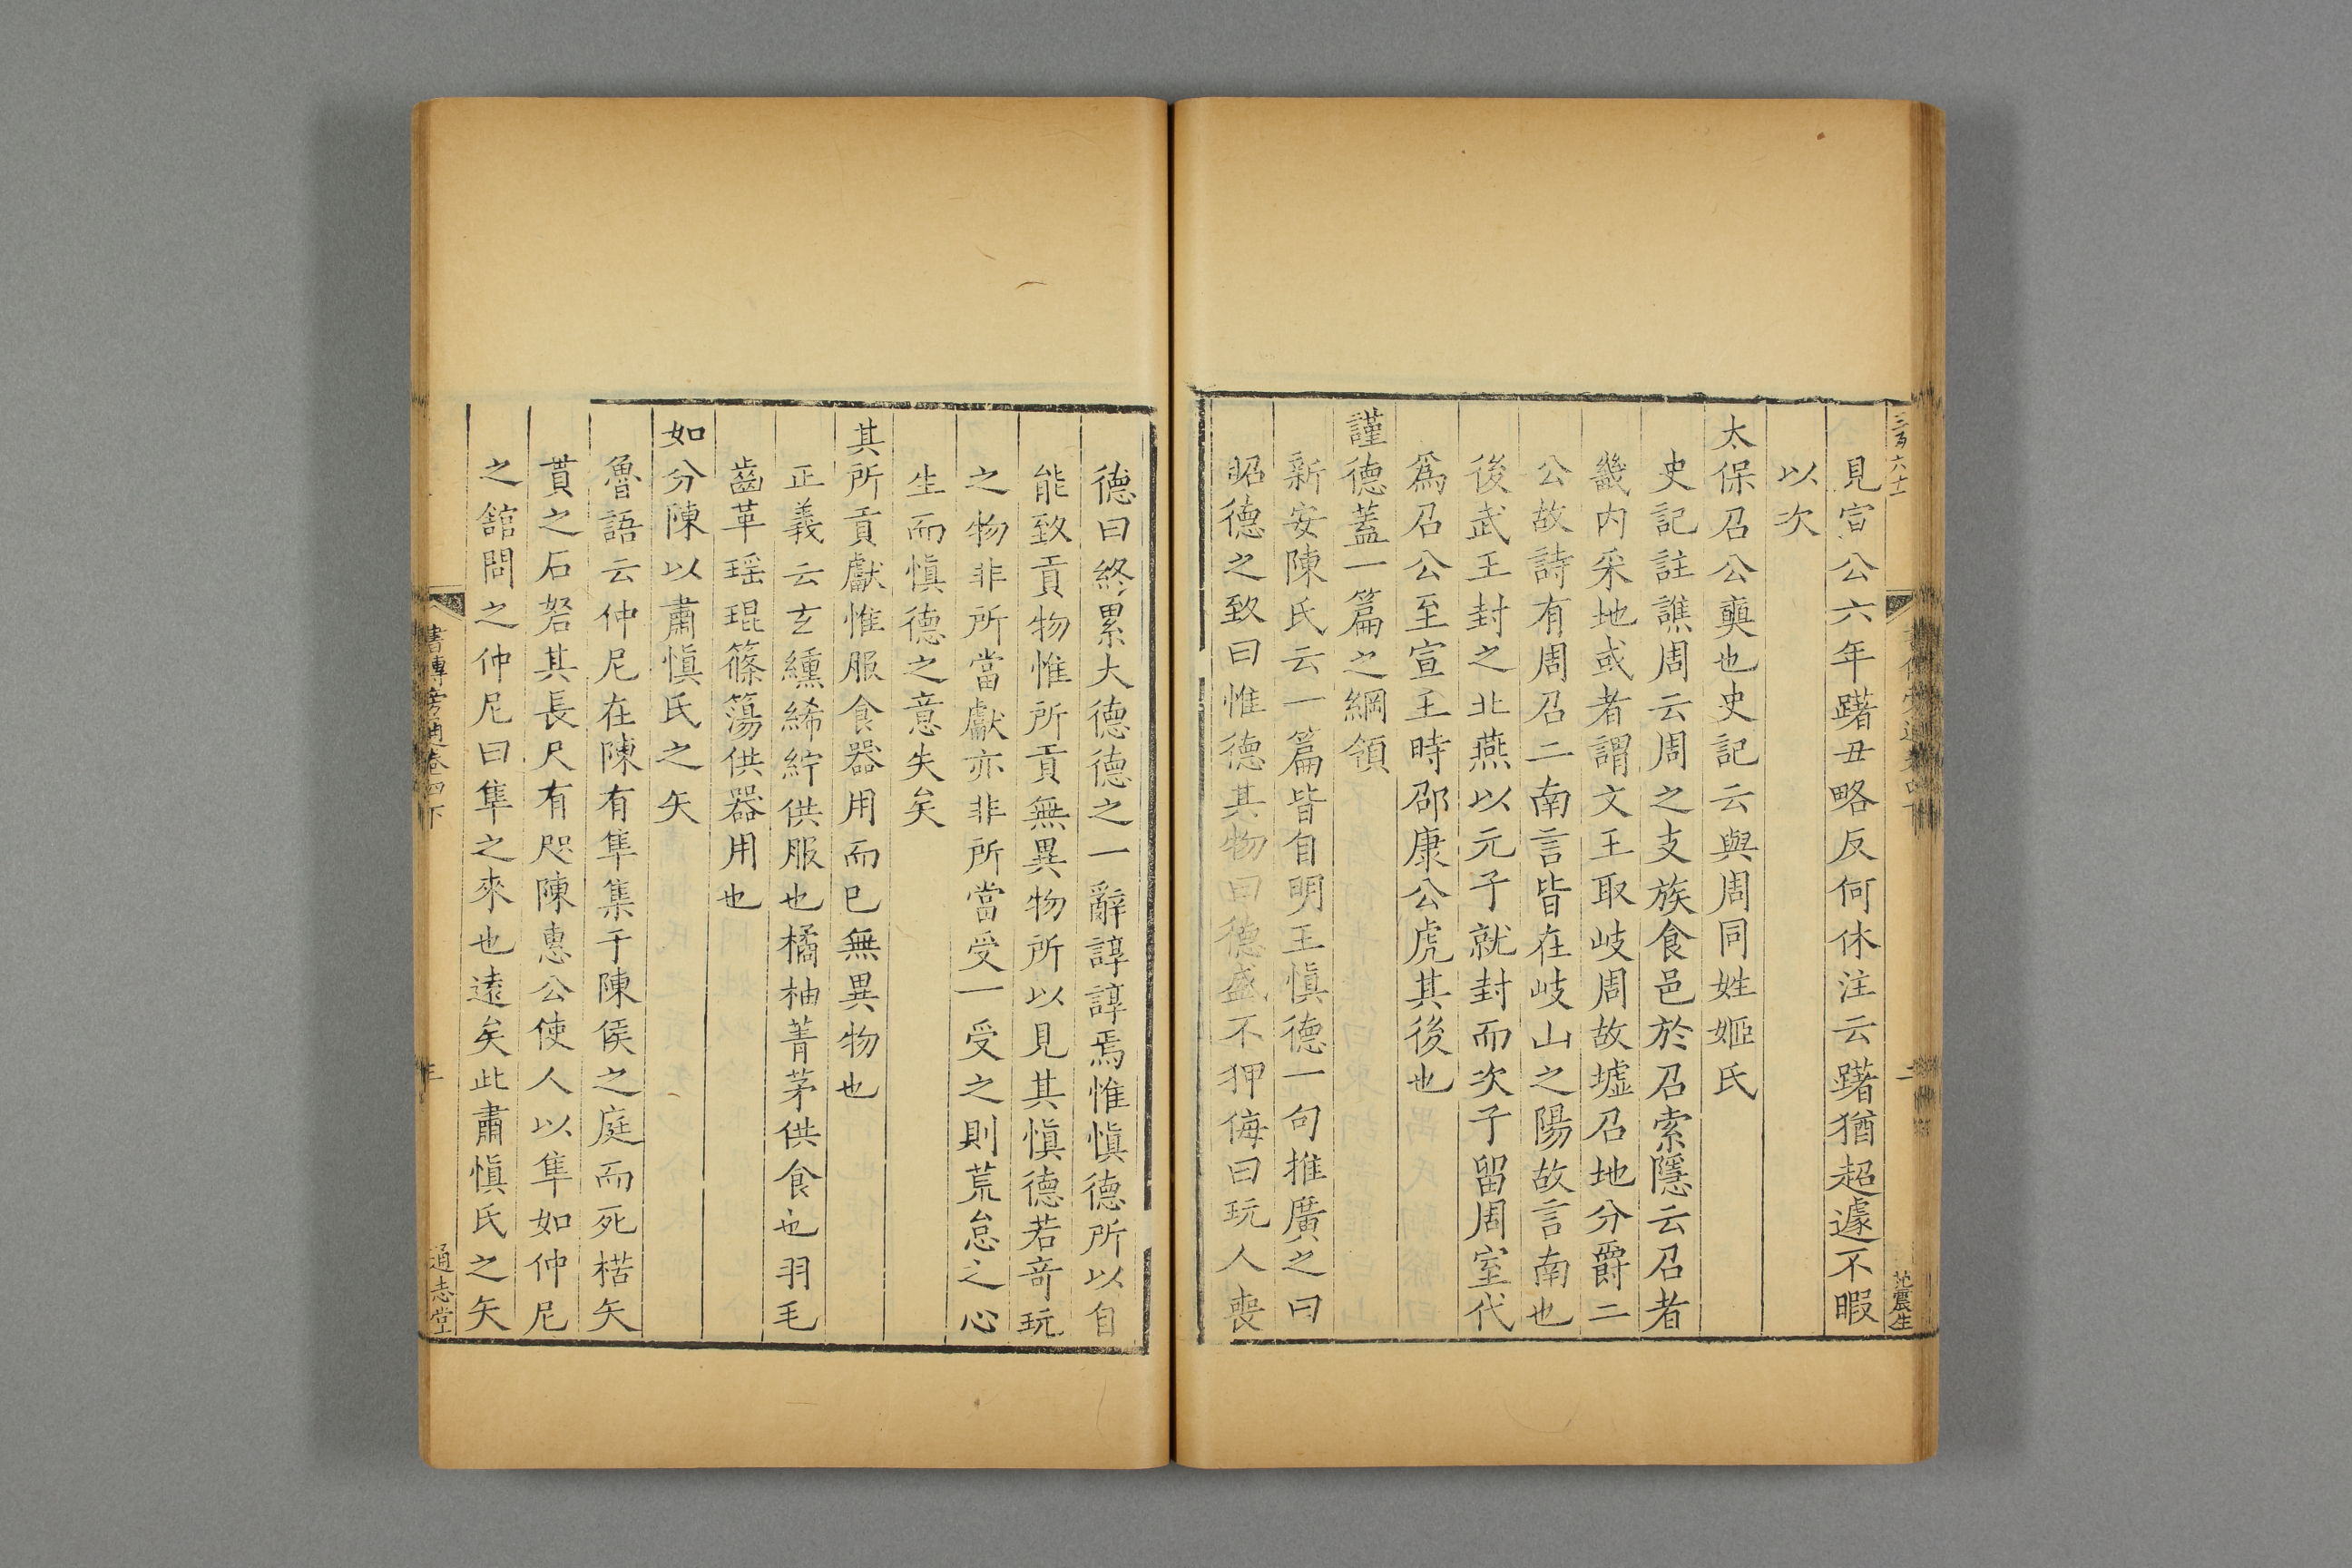 三百六十
見宣公六年躇丑略反何休注云躇猶超遽不暇
以次
太保召公奭也史記云與周同姓姬氏
史記註譙周云周之支族食邑於召索隱云召者
畿内采地或者謂文王取岐周故墟召地分爵二
公故詩有周召二南言皆在岐山之陽故言南也
後武王封之北燕以元子就封而次子留周室代
爲召公至宣王時邵康公虎其後也
謹德蓋一篇之綱領
新安陳氏云一篇皆自明王慎德一句推廣之曰
昭德之致曰惟德其物曰德盛不狎侮曰玩人喪
德曰終累大德德之一辭諄諄焉惟慎德所以自
能致貢物惟所貢無異物所以見其慎德若奇玩
之物非所當獻亦非所當受一受之則荒怠之心
生而慎德之意失矣
其所貢獻惟服食器用而已無異物也
正義云玄纁絺紵供服也橘柚菁茅供食也羽毛
齒革瑶琨篠簜供器用也
如分陳以肅慎氏之矢
魯語云仲尼在陳有隼集于陳侯之庭而死楛矢
貫之石砮其長尺有咫陳惠公使人以隼如仲尼
之舘問之仲尼曰隼之來也遠矣此肅慎氏之矢
書傳旁通卷四下
通志堂